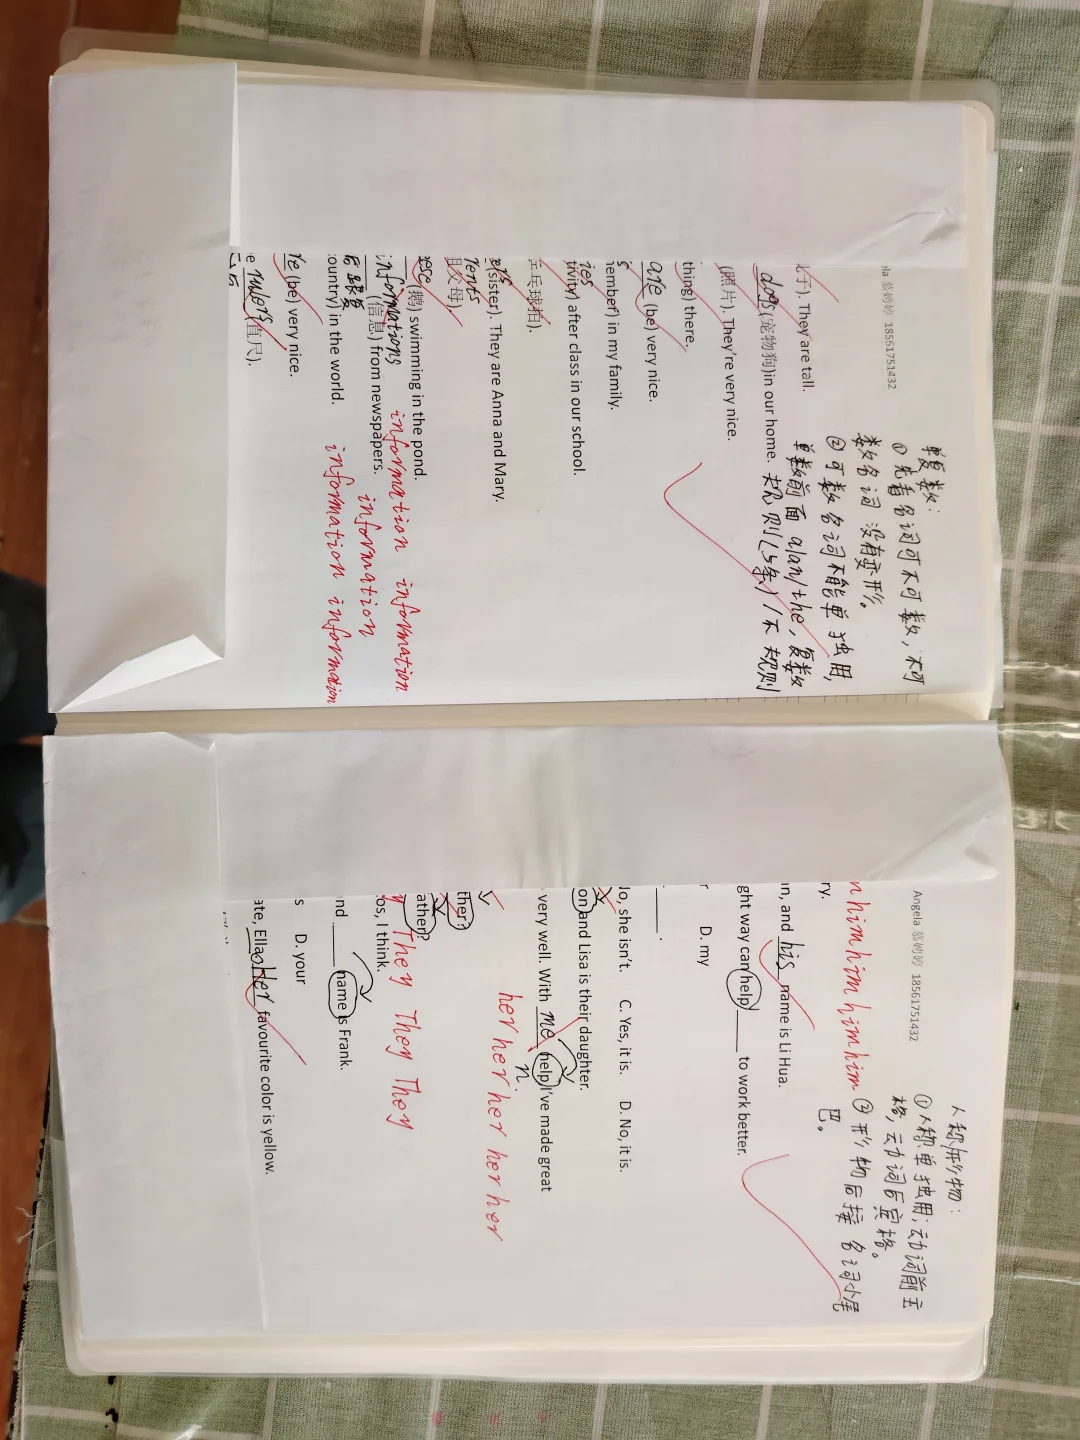 蔡娉婷 18561751432
单复数：
①先看名词可不可数，不可
数名词 没有变形。
②可数名词不能单独用，
单数前面 a/an/the，复数
规则(5条)/不规则
子). They are tall.
dogs (宠物狗)in our home.
(照片). They're very nice.
thing) there.
are (be) very nice.
member) in my family.
ies
tivity) after class in our school.
乒乓球拍).
(sister). They are Anna and Mary.
rents
父母).
(鹅) swimming in the pond.
informations
(信息) from newspapers.
information information
information
ountry) in the world.
information information
re (be) very nice.
e rulers (直尺).
Angela 蔡娉婷 18561751432
人称/形物：
①人称单独用；动词前主
格，动词后宾格。
②形物后接名词小尾
巴。
him him him him him
ry.
n, and his name is Li Hua.
ght way can help ____ to work better.
r D. my
____.
lo, she isn't. C. Yes, it is. D. No, it is.
on and Lisa is their daughter.
very well. With me help I've made great
n.
her her her her her
ther?
ather?
They They They
os, I think.
nd ____ name is Frank.
s D. your
ate, Ella Her favourite color is yellow.